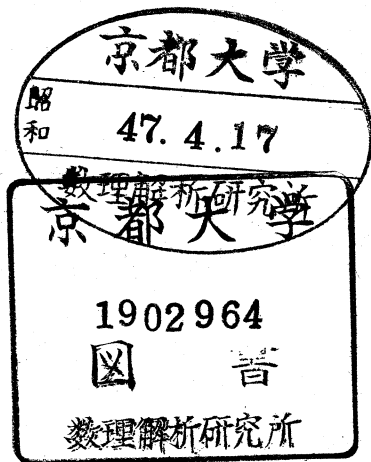 京都大学
昭和
47.4.17
数理解析研究所
京都大学
1902964
図書
数理解析研究所